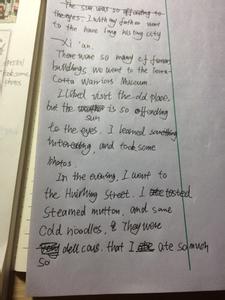 The sun was so offending to
the eyes. I with my father went
to the have long history city
— Xi'an.
There were so many of famous
buildings we went to the Terra-
Cotta Warriors Museum
I liked visit the old place,
but the is so offending
sun
to the eyes. I learned something
interesting, and took some
photos.
In the evening, I went to
the Huimin Street. I tasted
Steamed mutton, and some
Cold noodles, & They were
delicous. that I ate so much
so
special
took some
photos